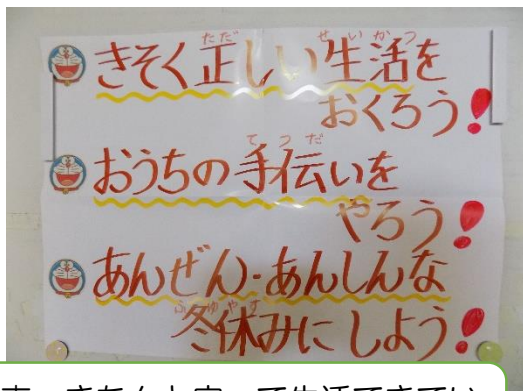 きそく正しい生活を
おくろう!
おうちの手伝いを
やろう!
あんぜん・あんしんな
冬休みにしよう!